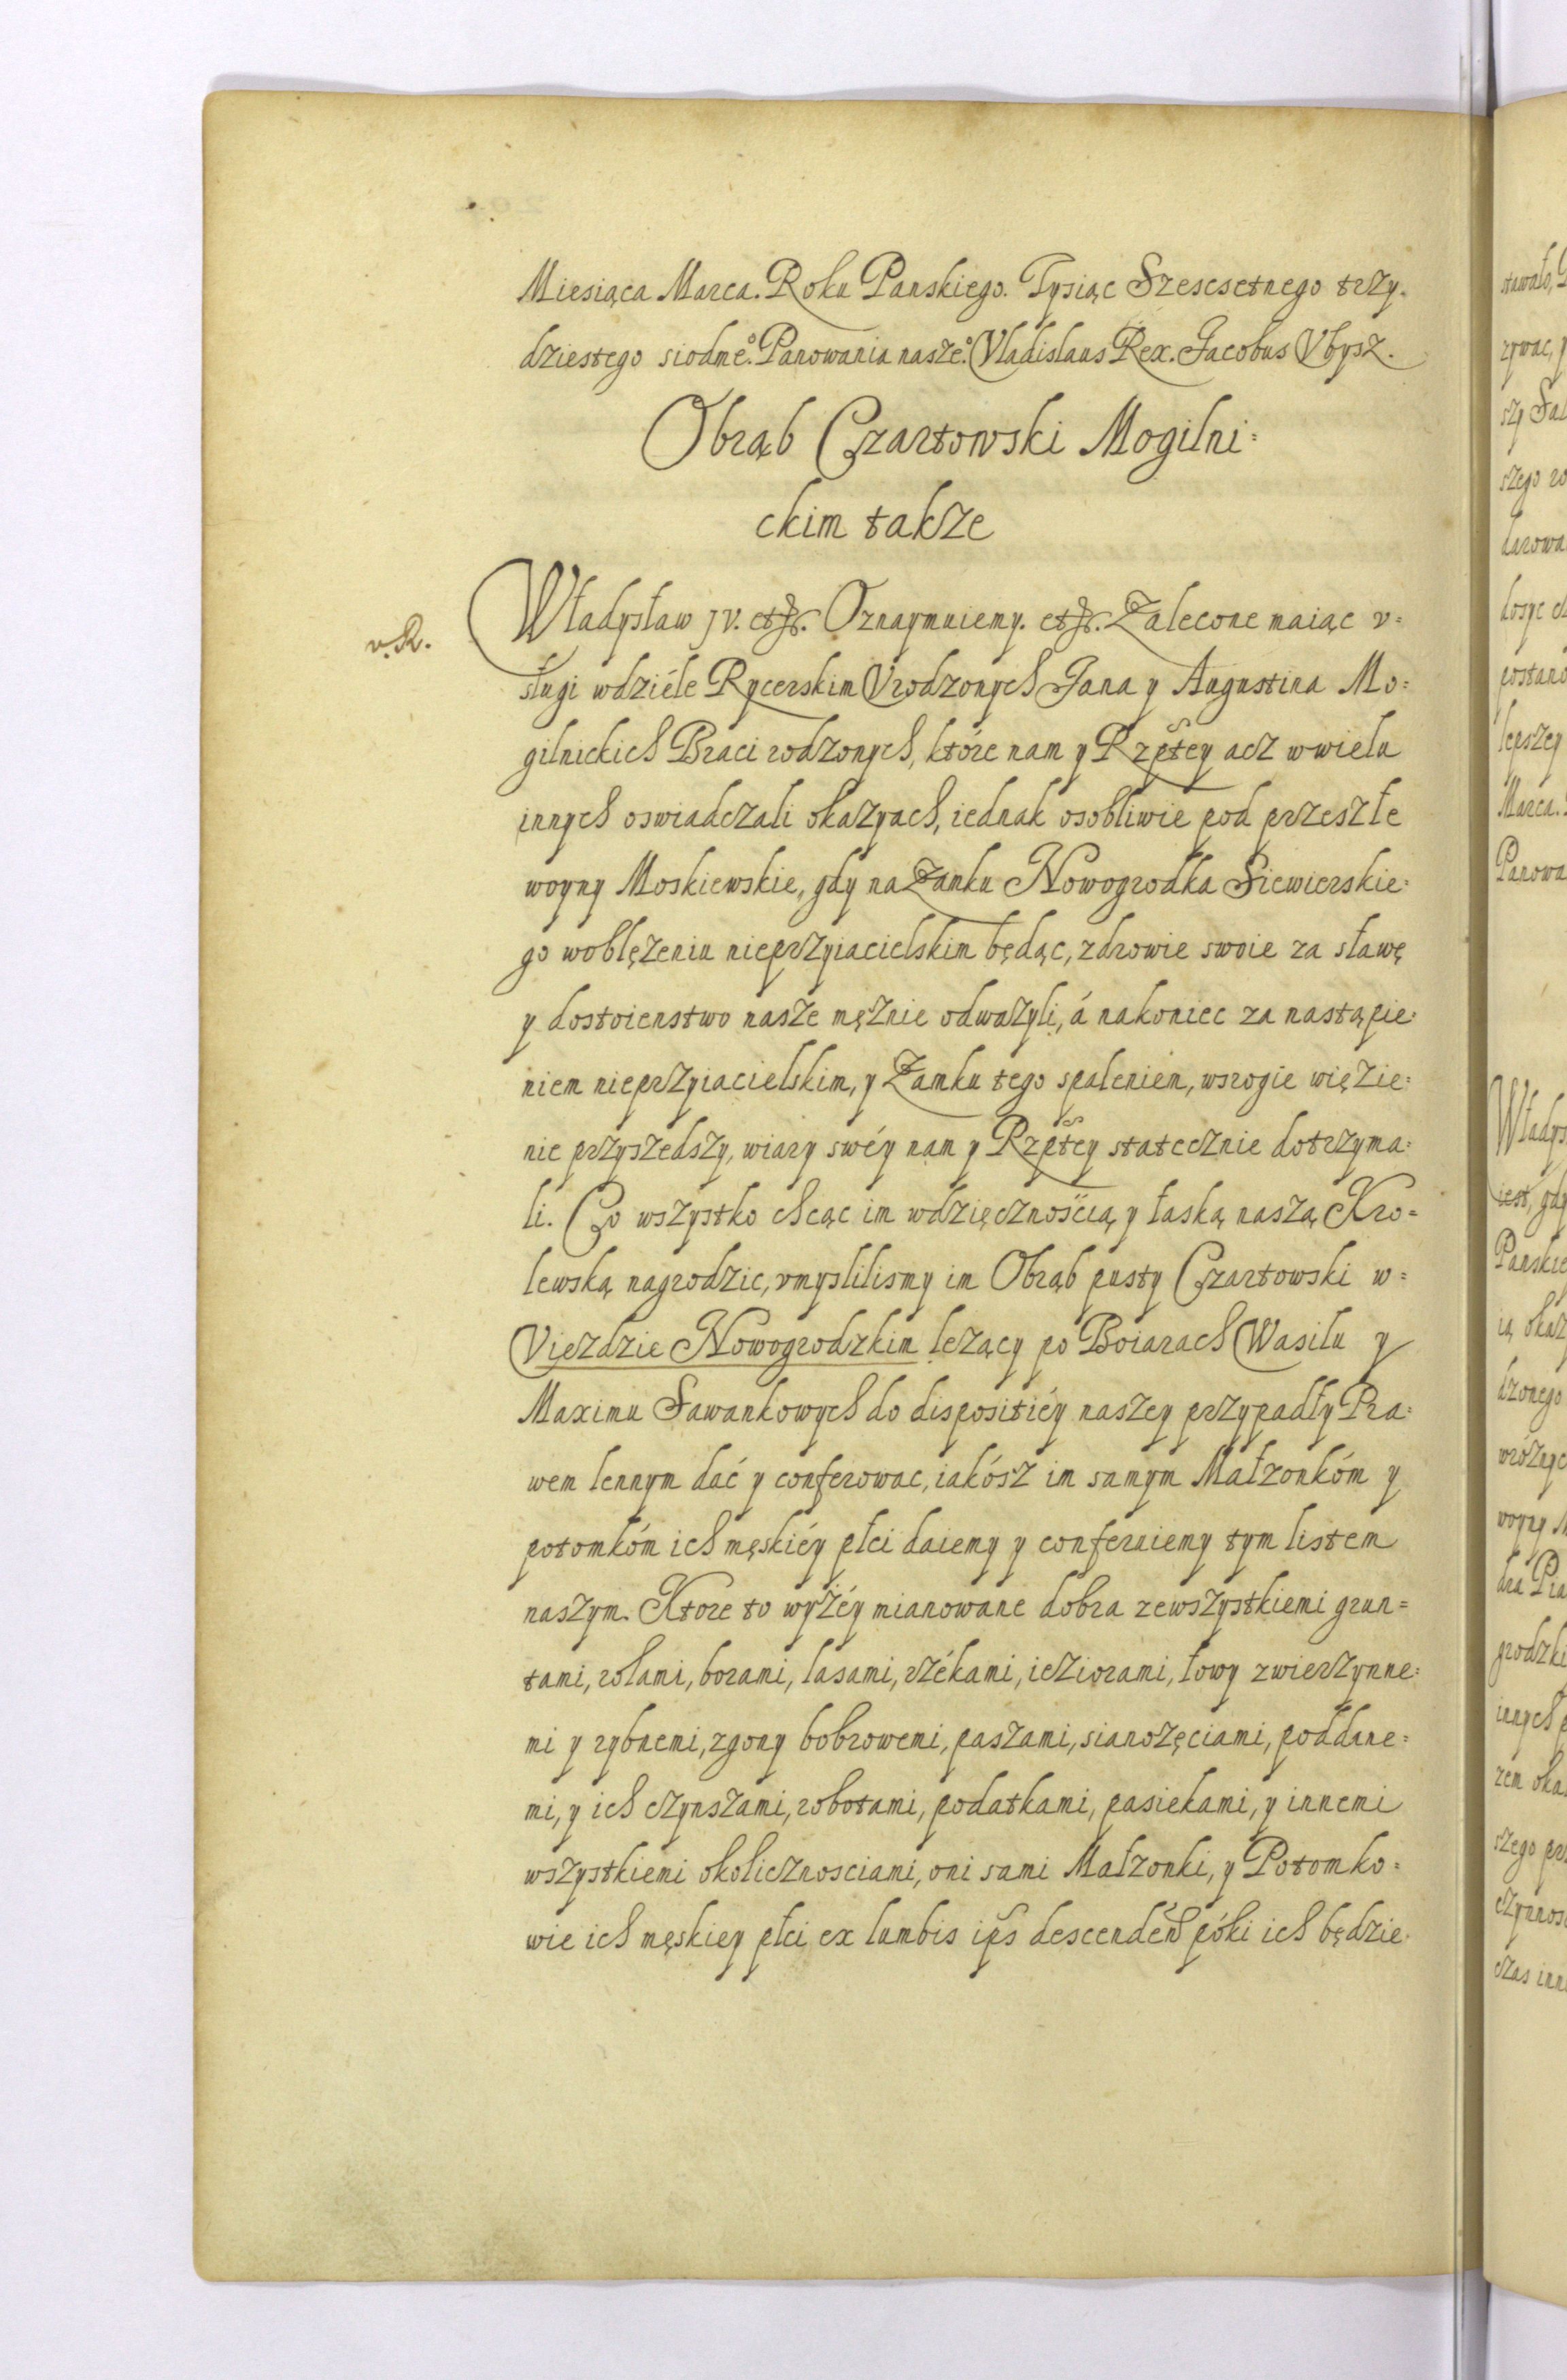 Miesiąca Marca. Roku Panskiego. Tysiąc Szescsetnego trzy-
dziestego siodme͒. Panowania nasze͒. Vladislaus Rex. Jacobus Vbysz.
Obrąb Czartowski Mogilni=
ckim takze
v. R.
Władysław JV. etc. Oznaymuiemy. etc. Zalecone maiąc v=
sługi wdziéle Rycerskim Vrodzonych Jana y Augustina Mo=
gilnickich Braci rodzonych, które nam y Rzpltey acz w wielu
innych oswiadczali okazyach, iednak osobliwie pod przeszłe
woyny Moskiewskie, gdy na Zamku Nowogrodka Siewierskie=
go woblężeniu nieprzyiacielskim będąc, zdrowie swoie za sławę
y dostoienstwo nasze mężnie odwazyli, á nakoniec za nastąpie=
niem nieprzyiacielskim, y Zamku tego spaleniem, wsrogie więzie=
nie przyszedszy, wiary swéy nam y Rzpltey statecznie dotrzyma=
li. Co wszystko chcąc im wdzięcznością y łaską naszą Kro=
lewską nagrodzic, vmyslilismy im Obrąb pusty Czartowski w=
Vjezdzie Nowogrodzkim lezący po Boiarach Wasilu y
Maximu Sawankowych do dispositiéy naszey przypadły Pra=
wem lennym dać y conferowac, iakósz im samym Małzonkóm y
potomkóm ich męskiéy płci daiemy y conferuiemy tym listem
naszym. Ktore to wyżéy mianowane dobra zewszystkiemi grun=
tami, rolami, borami, lasami, rzékami, ieziorami, łowy zwierzynne=
mi y rybnemi, zgony bobrowemi, paszami, sianożęciami, poddane=
mi, y ich czynszami, robotami, podatkami, pasiekami, y innemi
wszystkiemi okolicznosciami, oni sami Małzonki, y Potomko=
wie ich męskiey płci ex lumbis ips descenden póki ich będzie